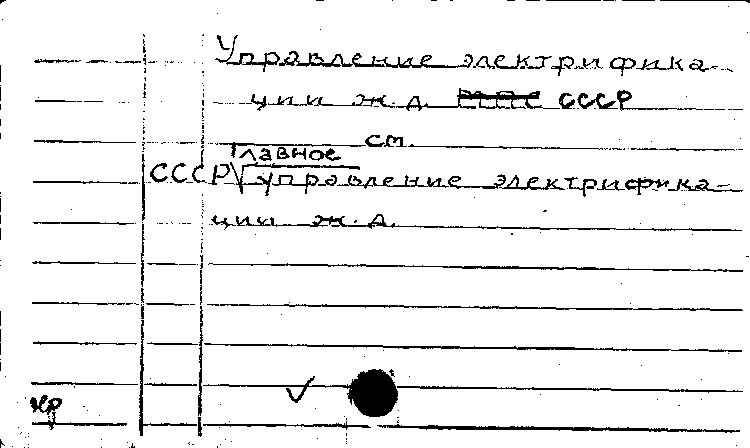 Управление электрифика-
ции ж.д. СССР
см.
Главное
СССР управление электрифика-
ции ж.д.
кр